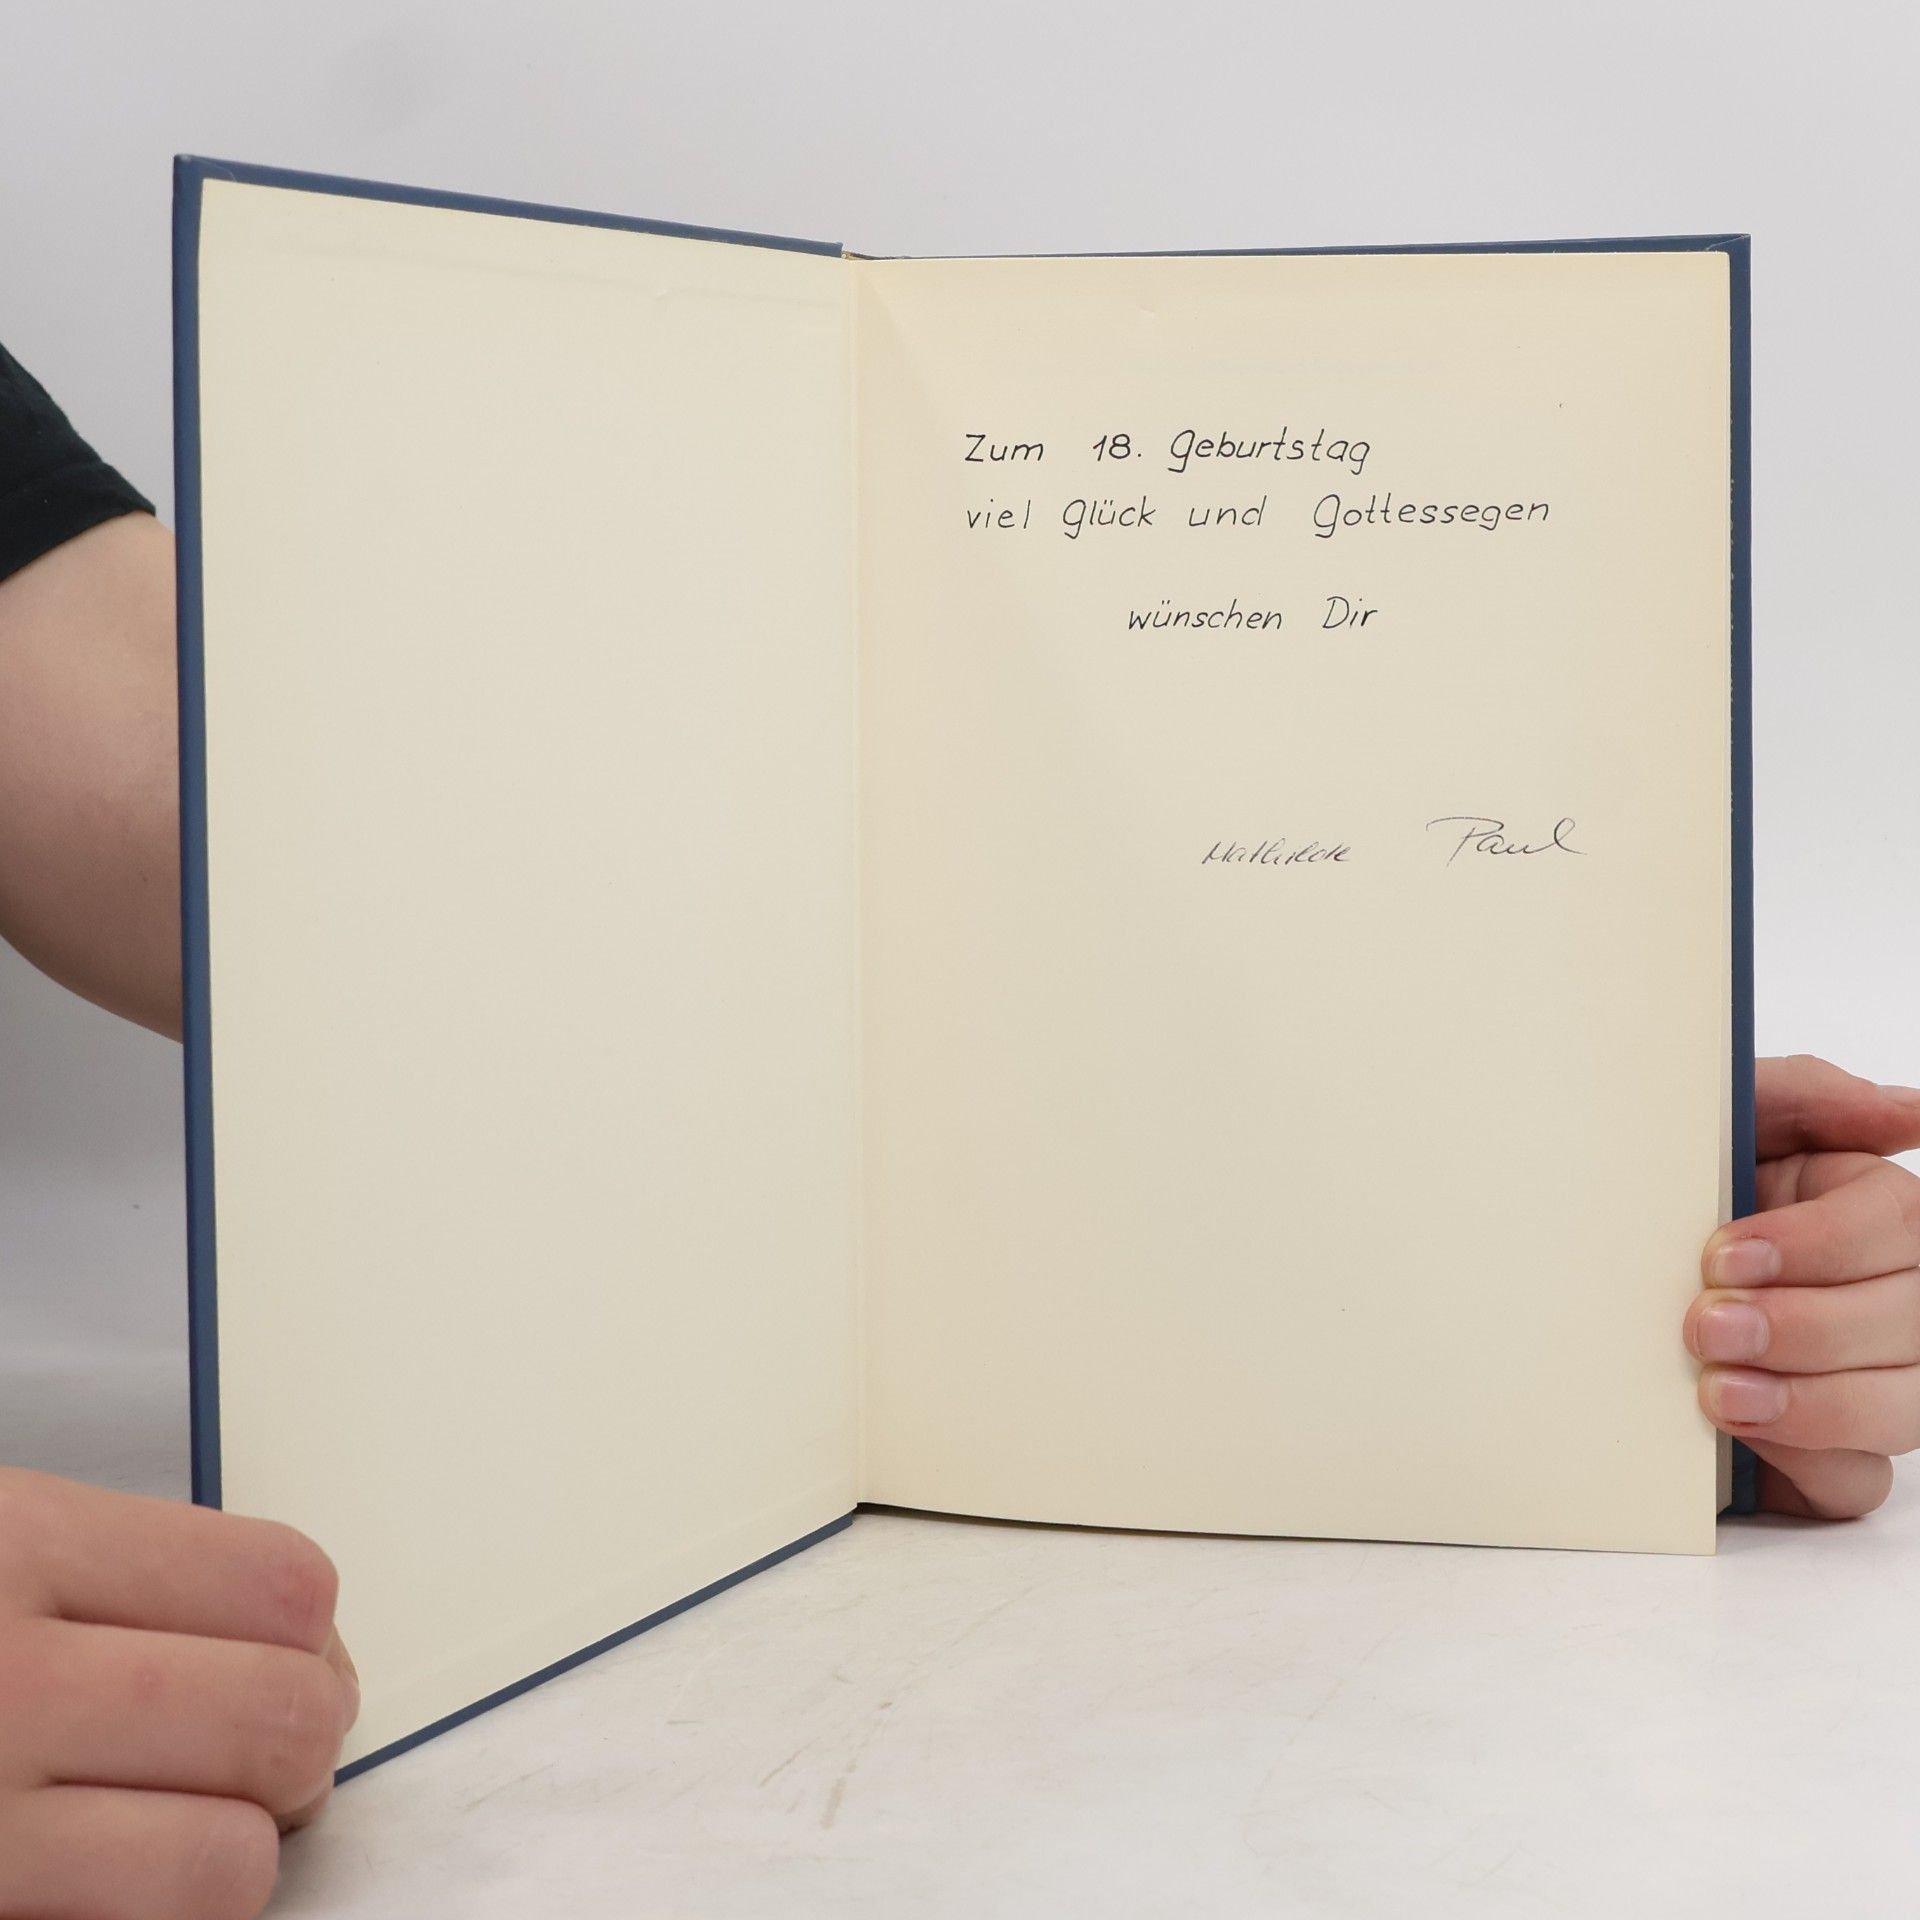 Zum 18. Geburtstag
viel Glück und Gottessegen
wünschen Dir
Mathilde Paul